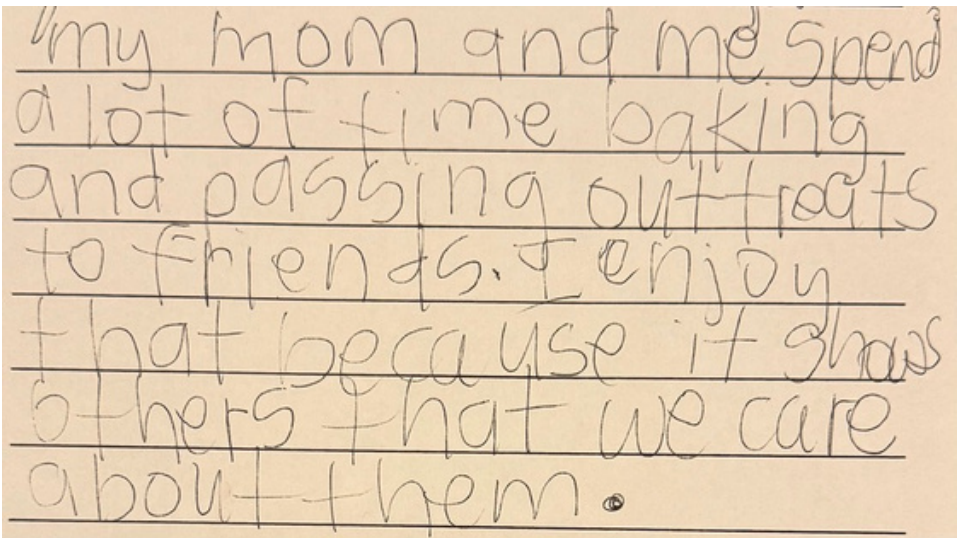 "my mom and me spend
a lot of time baking
and passing out treats
to friends. I enjoy
that because it shows
others that we care
about them.